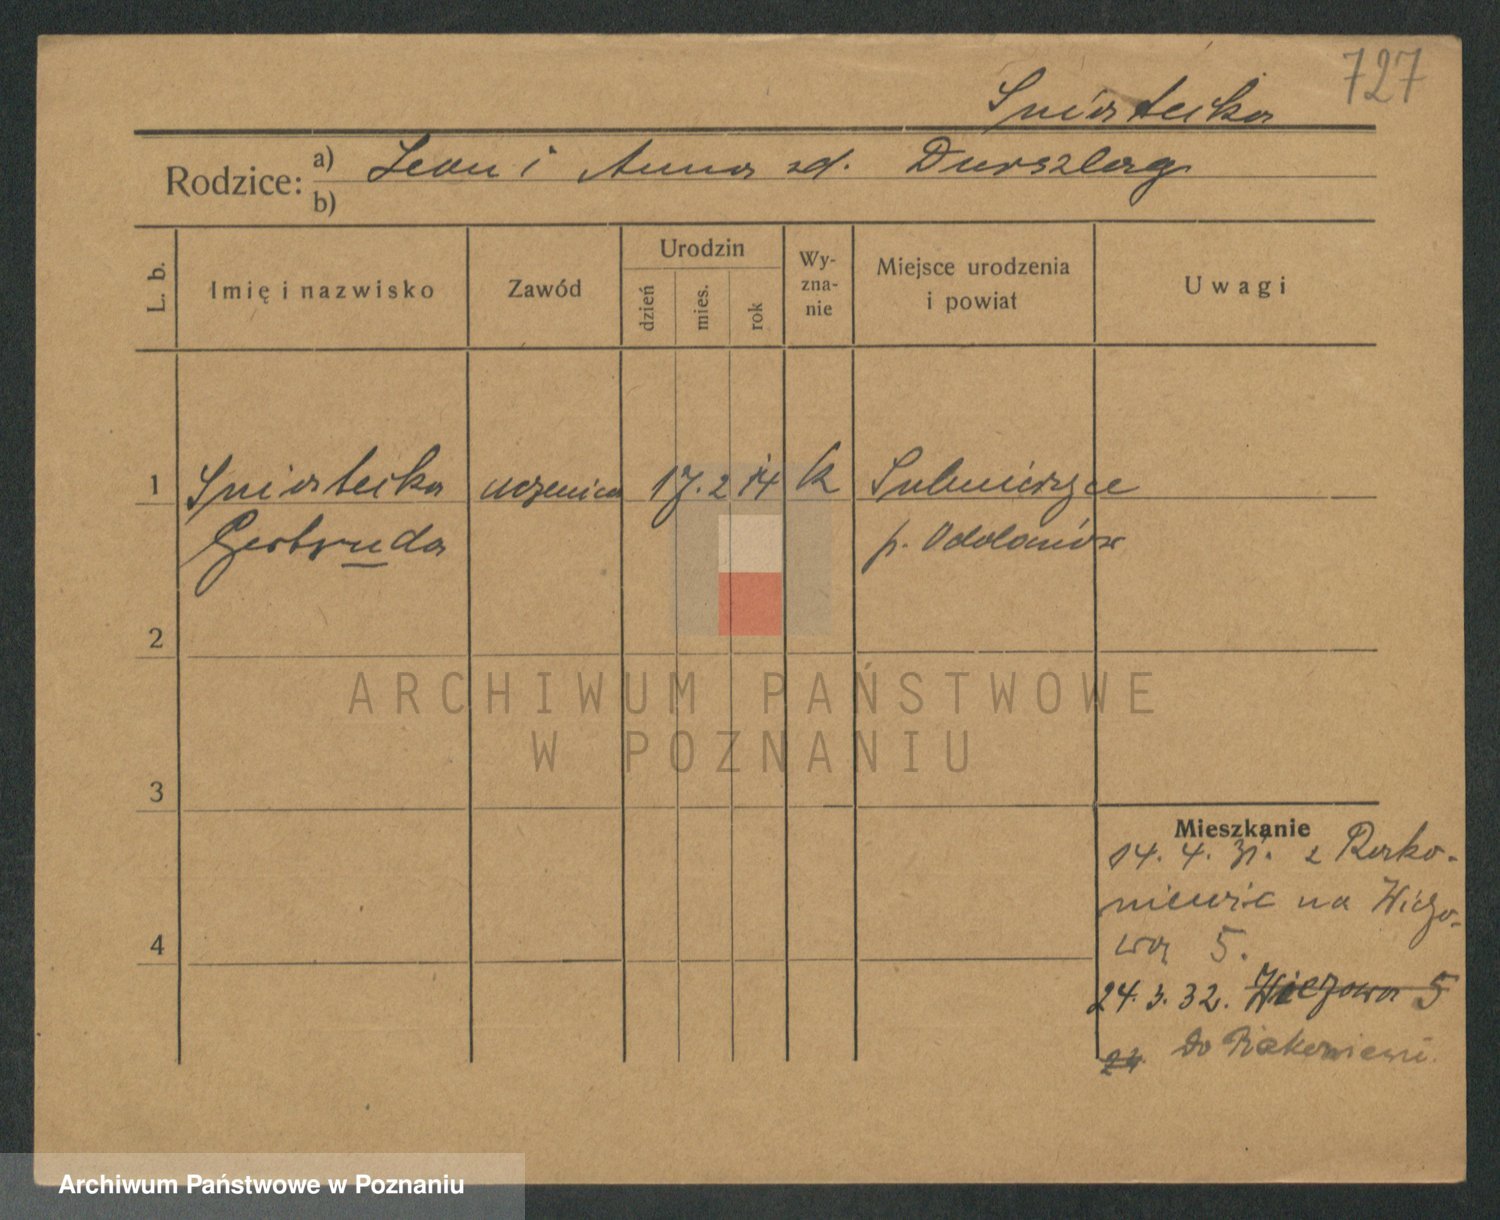 727
Sniatecka
Rodzice: a) Leon i Anna zd. Durszlag
b)
L. b.
Imię i nazwisko
Zawód
Urodzin
dzień
mies.
rok
Wy-
zna-
nie
Miejsce urodzenia
i powiat
Uwagi
1 Sniatecka uczenica 17. 2 14 k Sulmierzyce
Gertruda p. Odolanów
2
ARCHIWUM PAŃSTWOWE
W POZNANIU
3
4
Mieszkanie
14. 4. 31. z Rako-
niewic na
5.
24. 3. 32. 5
24. Do
Archiwum Państwowe w Poznaniu